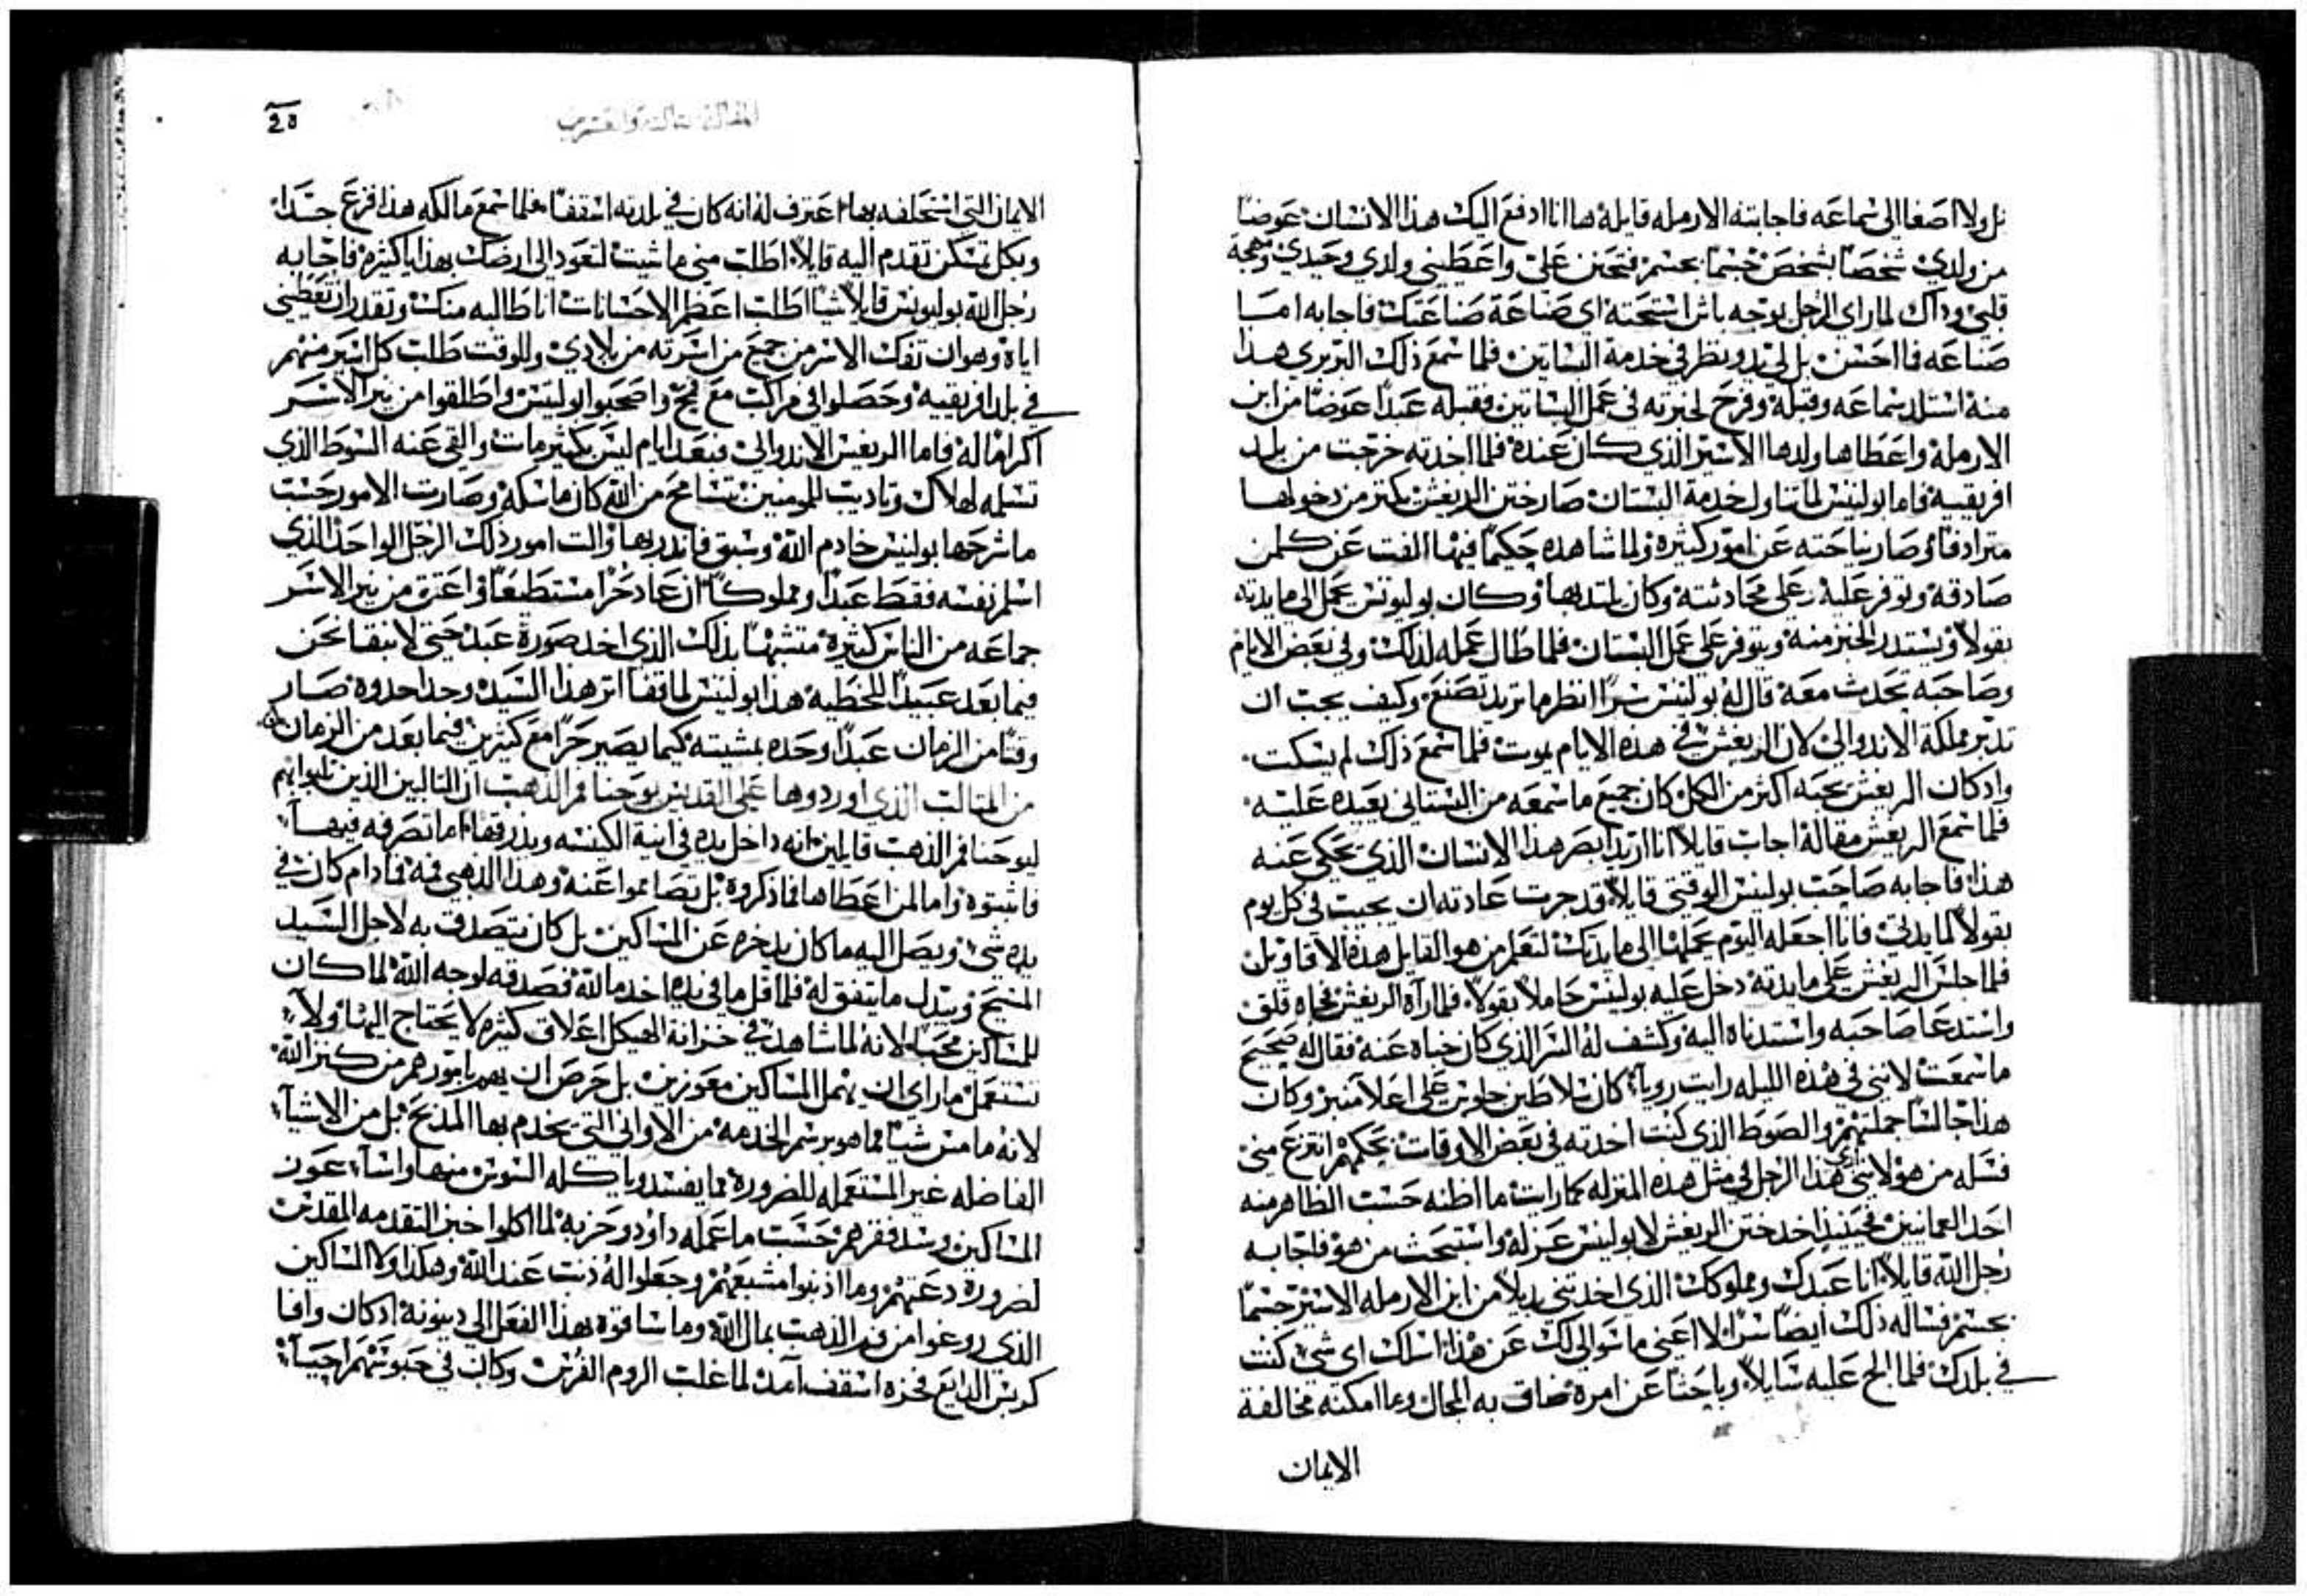 بل ولا اصغا الى سماعه فاجابته الارمله قايله ها انا ادفع اليك هذا الانسان عوضاً
من ولدي شخصاً بشخص جسماً بجسم فتحنن علي واعطيني ولدي وحيدي ومهجة
قلبي وداك لما راي الرجل بوجه باش استحته اي صناعة صناعتك فاجابه اما
صناعه فما احسن بل لي يد ونظر في خدمة البساتين فلما سمع ذلك البربري هذا
منه استلد سماعه وقبله وفرح لخبرته في عمل البساتين فقبله عبداً عوضاً من ابن
الارملة واعطاها ولدها الاسير الذي كان عنده فلما اخدته خرجت من بلد
افريقيه فاما بولينس لما تناول خدمة البستان صار ختن الريغس يكتر من دخولها
مترادفاً وصار يباحته عن امور كثيره ولما شاهده حكيماً فيها الفت عن كلمن
صادقه وتوفر عليه وعلى محادثته وكان يلتد بها وكان بوليونس يحمل الى مايدته
بقولاً ويستدر الخبز منه ويتوفر على عمل البستان فلما طال عمله لذلك وفي بعض الايام
وصاحبه يحدث معه قال له بولينس سراً انظر ما تريد تصنع وكيف يجب ان
تدبر مملكة الاندوالي لان الريغس في هذه الايام يموت فلما سمع ذلك لم يسكت
واد كان الريغس يحبه اكثر من الكل كان جميع ما سمعه من البستاني يعيده عليه
فلما سمع الريغس مقاله اجاب قايلاً انا اريد ابصر هذا الانسان الذي تحكي عنه
هذا فاجابه صاحب بولينس الوقتي قايلاً قد جرت عادته ان يجيب في كل يوم
بقولاً لمايدتي فانا اجعله اليوم يحملها الى مايدتك لتعلم من هو القايل هذه الاقاويل
فلما جلس الريغس على مايدته دخل عليه بولينس حاملاً بقولاً فلما رآه الريغس تجاه قلق
واستدعا صاحبه واستدناه اليه وكشف له السر الذي كان خباه عنه فقال له صحيح
ما سمعت لانني في هذه الليله رايت رويآ كان سلاطين جلوس على اعلا منبر وكان
هذا جالساً جملتهم والصوط الذي كنت اخدته في بعض الاوقات بحكمهم انتزع مني
فسله من هو لانني هذا الرجل في مثل هذه المنزله كما رايت ما اظنه حسب الظاهر منه
احد العماميين فحينيذ اخد ختن الريغس لابولينس عزله واستبحث من هو فاجابه
رجل الله قايلاً انا عبدك ومملوكك الذي اخدتني بديلاً من ابن الارمله الاسير جسماً
بجسم فساله ذلك ايضاً سراً لا اعني ما سوالي لك عن هذا اسلك اي شي كنت
في بلدك فلما الح عليه سايلاً وباحثاً عن امره ضاق به المجال وما امكنه مخالفة
الايمان
20
الايمان التي استحلفه بها اعترف له انه كان في بلدته اسقفاً فلما سمع مالكه هذا فزع جداً
وبكل تمسكن تقدم اليه قايلاً اطلب مني ما شيت لتعود الى ارضك بهدايا كثيره فاجابه
رجل الله بوليونس قايلاً شياً اطلب اعظم الاحسانات انا طالبه منك وتقدر ان تعطيني
اياه وهو ان تفك الاسر من جميع من اسرته من بلادي وللوقت طلب كل اسير منهم
في بلد افريقيه وحصلوا في مراكب مع قمح واصحبوا بولينس واطلقوا من نير الاسر
اكراماً له فاما الريغس الاندوالي فبعد ايام ليس بكثير مات والقي عنه السوط الذي
تسلمه لهلاك وتاديب المومنين بتسامح من الله كان ماسكه وصارت الامور حسب
ما شرحها بولينس خادم الله وسبق فاندر بها والت امور ذلك الرجل الواحد الذي
اسلم نفسه فقط عبداً ومملوكاً ان عاد حراً مستطيعاً واعتق من نير الاسر
جماعه من الناس كثيره متشبهاً بذلك الذي اخد صورة عبد حتى لا نبقا نحن
فيما بعد عبيداً للخطيه هذا بولينس لما قفا اتر هذا السيد وحدا حدوه صار
وقتاً من الزمان عبداً وحده بمشيته كيما يصير حراً مع كثيرين فيما بعد من الزمان
من المثالب الذي اوردوها على القديس يوحنا فم الذهب ان التالبين الذين تلبوا بهم
ليوحنا فم الذهب قايلين انه داخل يده في انية الكنسه وبذرقها اما تصرفه فيها
فاشتوه واما لمن اعطاها فما ذكروه بل تصامموا عنه وهذا الذهبي فمه فما دام كان في
يده شي ويصل اليه ما كان يدخره عن المساكين بل كان يتصدق به لاجل السيد
المسيح ويبدل ما يتفق له فلما قل ما في يده اخد مال الله فصدقه لوجه الله لما كان
للمساكين محباً لانه لما شاهد في خزانة الهيكل اعلاق كثيره لا يحتاج اليها ولا
تستعمل ما راي ان يهمل المساكين معوزين بل حرص ان يهم بامورهم من كنز الله
لانه ما مس شياً مما هو برسم الخدمه من الاواني التي يخدم بها المدبح بل من الاشيآ
الفاضله غير المستعمله للضرورة مما يفسد وياكله السوس منها وانسآ عون
المساكين وسد فقرهم حسب ما عمله داوود وحزبه لما اكلوا خبز التقدمه المقدس
لضرورة دعتهم وما اذنبوا مشبعهم وجعلوا له ذنب عند الله وهكدا ولا المساكين
الذي روعوا من فم الذهب بمال الله وما ساقوه بهذا الفعل الى دينونة اد كان وافا
كريس الدايع فخره اسقف آمد لما غلب الروم الفرس وكان في حبوسهم احيآ